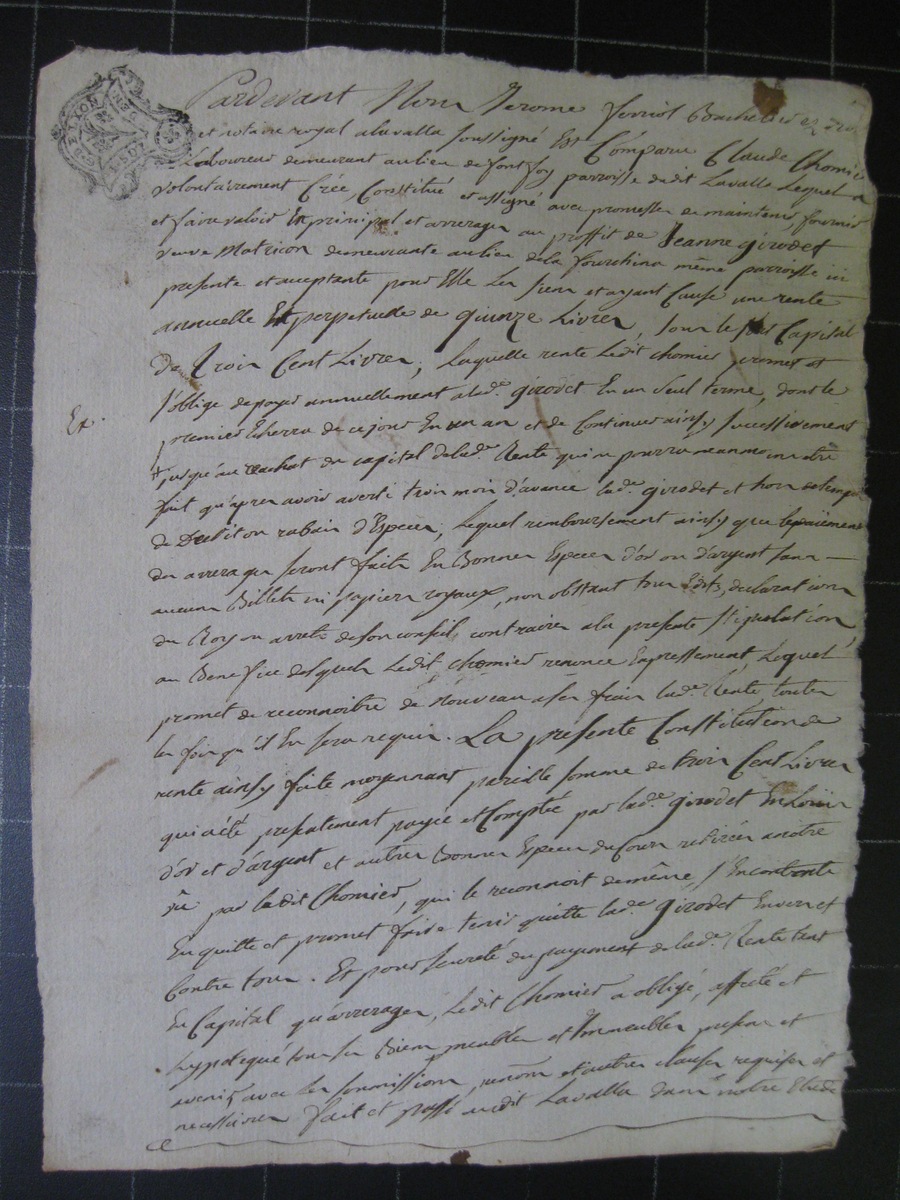 GEN. LYON
2 SOLS
Pardevant Nous Jerome
et notaire royal a Lavalla soussigné Est Comparu Claude Chomier
Laboureur demeurant au lieu de font foy parroisse dudit Lavalla Lequel a
volontairement Créé, Constitué et assigné avec promesse de maintenir, fournir
et faire valoir En principal et arrerages au proffit de Jeanne girodet
veuve Matricon demeurante au lieu de la fourchina même parroisse ici
presente et acceptante pour Elle Les siens et ayant Cause une rente
annuelle Et perpetuelle de quinze Livres, sous le Capital
de Trois Cent Livres, Laquelle rente Ledit Chomier promet et
s'oblige de payer annuellement a lad.e girodet En un seul terme, dont le
Ex.
premier Echerra de ce jour En un an et de Continuer ainsy successivement
jusqu'au rachat du capital de lad.e Rente qui ne pourra neanmoins etre
fait qu'apres avoir averti trois mois d'avance lad.e girodet et hors de temps
de Decri ou rabais d'Especes, Lequel remboursement ainsy que le paiement
des arrerages seront faits En Bonnes Especes d'or ou d'argent sans
aucuns Billets ni papiers royaux, non obstant tous Edits, declarations
du Roy ou arrets de son conseil, contraires a la presente stipulation
au Benefice desquels Ledit Chomier renonce Expressement, Lequel
promet de reconnoitre de Nouveau a ses frais lad.e Rente, toutes
les fois qu'il En sera requis. La presente Constitution de
rente ainsy faite moyennant pareille somme de trois Cent Livres
qui a été presentement payée et Comptée par lad.e girodet En Louis
d'or et d'argent et autres Bonnes Especes du Cours retirées a notre
vû par ledit Chomier, qui le reconnoit de même s'En contente
En quitte et promet faire tenir quitte lad.e girodet Envers et
Contre tous. Et pour seureté du payement de lad.e Rente tant
En Capital qu'arrerages, Ledit Chomier a obligé, affecté et
hypotequé tous ses Biens meubles et Immeubles presens et
avenir avec les soumissions, et autres clauses requises et
necessaires fait et passé audit Lavalla dans notre Etude